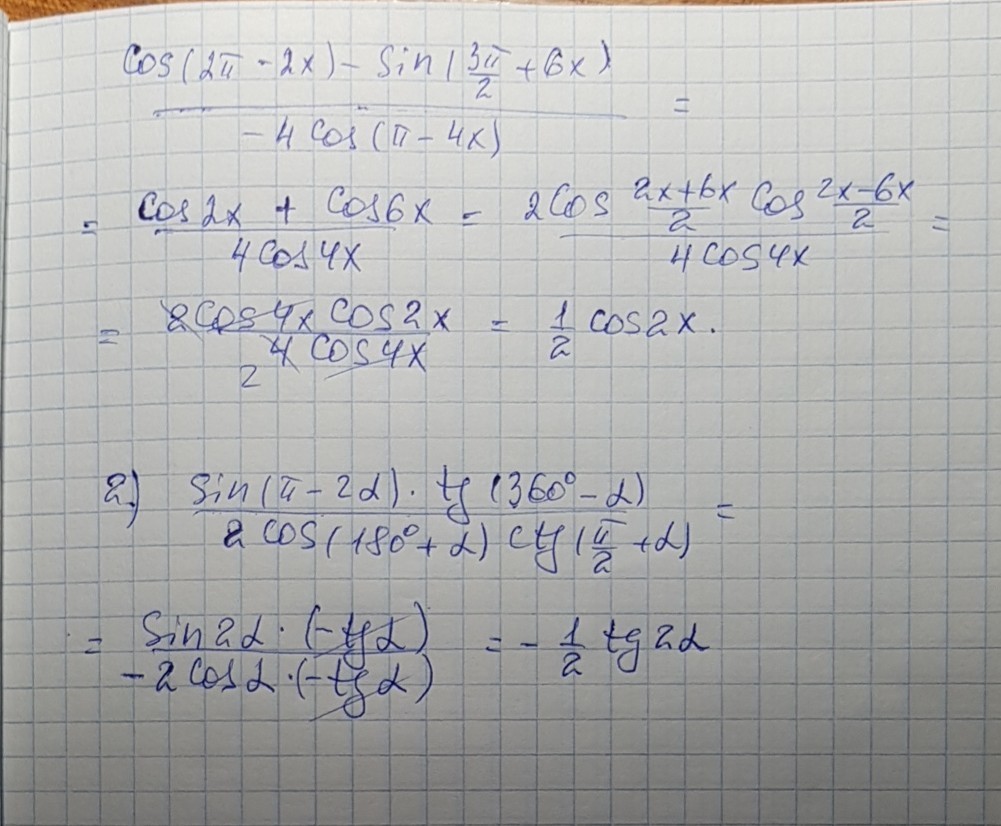 cos(2π - 2x) - sin(3π/2 + 6x) / -4 cos(π - 4x) =
= cos2x + cos6x / 4cos4x = 2cos (2x+6x)/2 cos (2x-6x)/2 / 4cos4x =
= 2cos4x cos2x / 4cos4x 2 = 1/2 cos2x.
2) sin(π - 2α) · tg(360° - α) / 2cos(180° + α) ctg(π/2 + α) =
= sin2α · (-tgα) / -2cosα · (-tgα) = - 1/2 tg2α